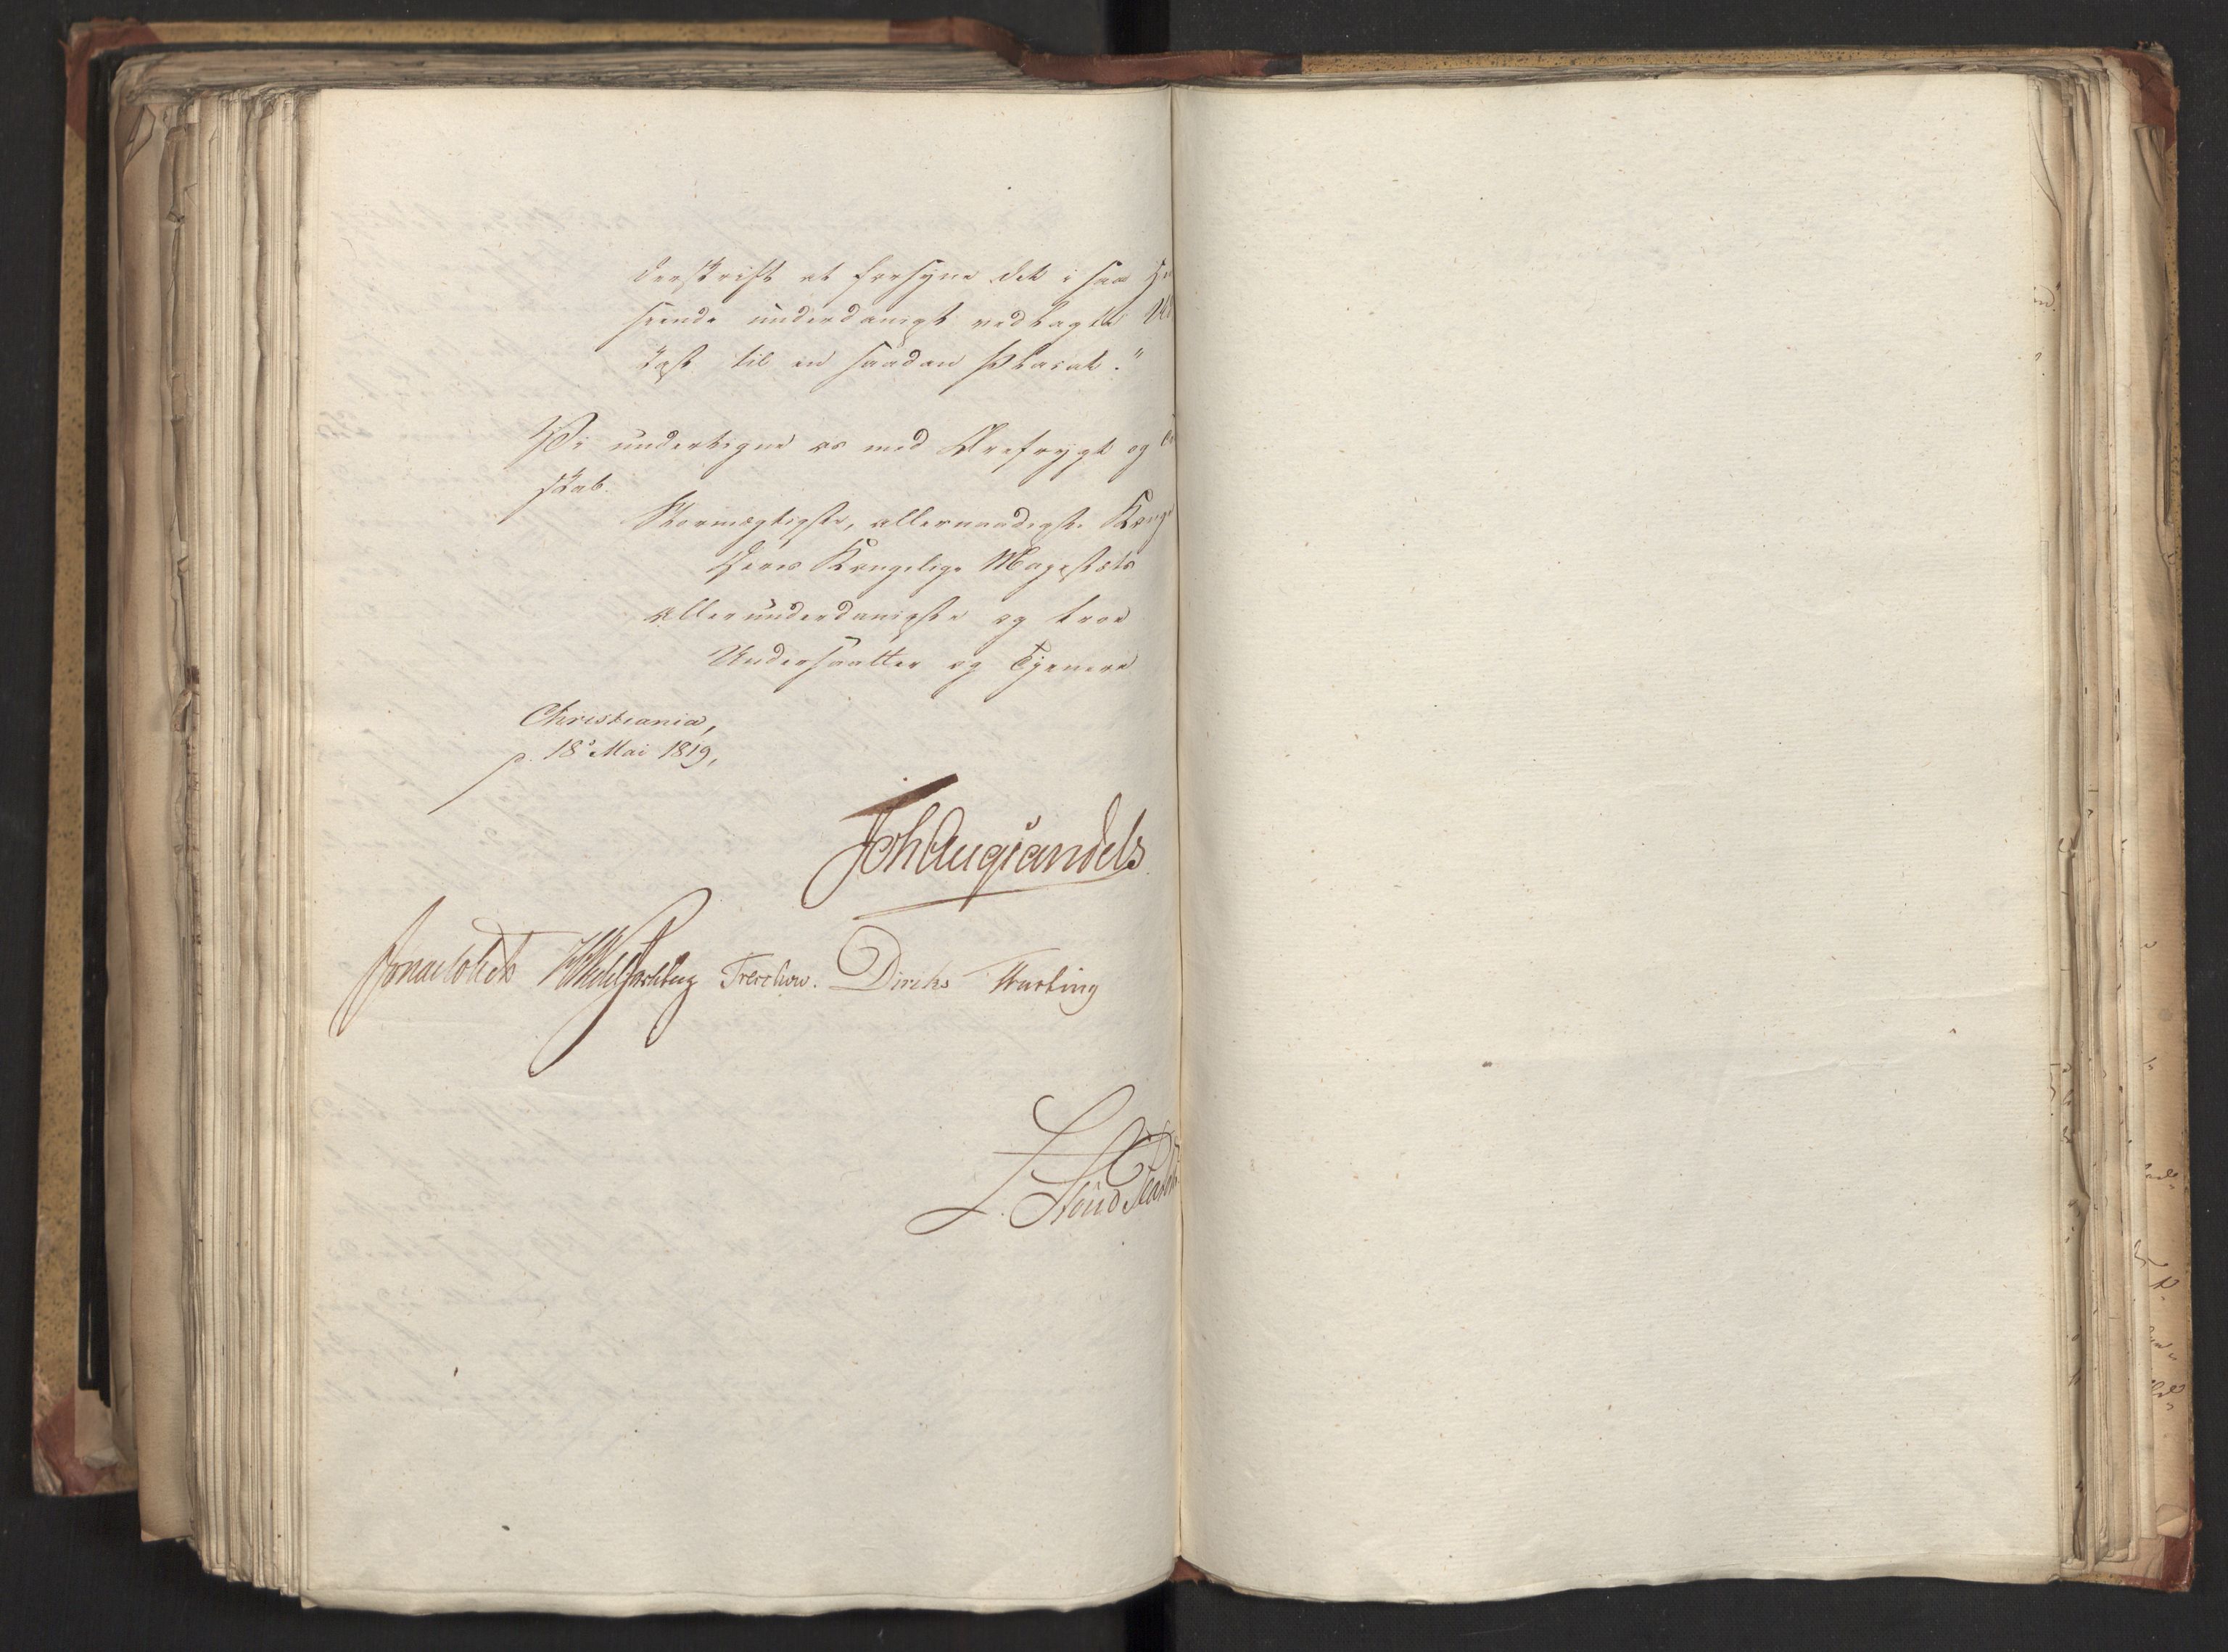 derskrift at forsyne det i saa He
seende underdanigst vedlagte Ud
kast til en saadan Plakat."
Vi undertegne os med Ærefrygt og
skab.
Stormægtigste, allernaadigste Konge
Deres Kongelige Majestæts
allerunderdanigste og troe
Undersaatter og Tjenere
Christiania,
d. 18de Mai 1819,
Joh Aug Sandels
Jonas Collett HWedelJarlsberg Treschow. Diriks Fasting
L. Stoud Platou